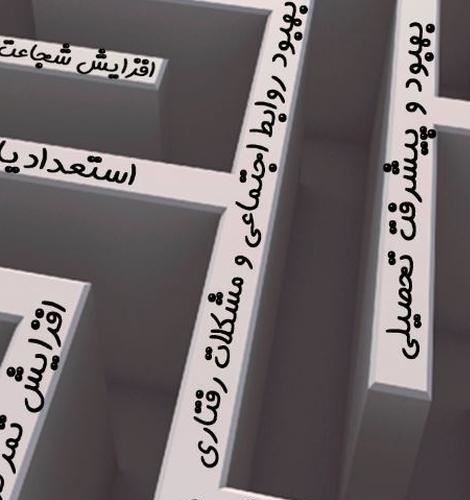 افزایش شجاعت
استعداد
بهبود روابط اجتماعی و مشکلات رفتاری
بهبود و پیشرفت تحصیلی
افزایش